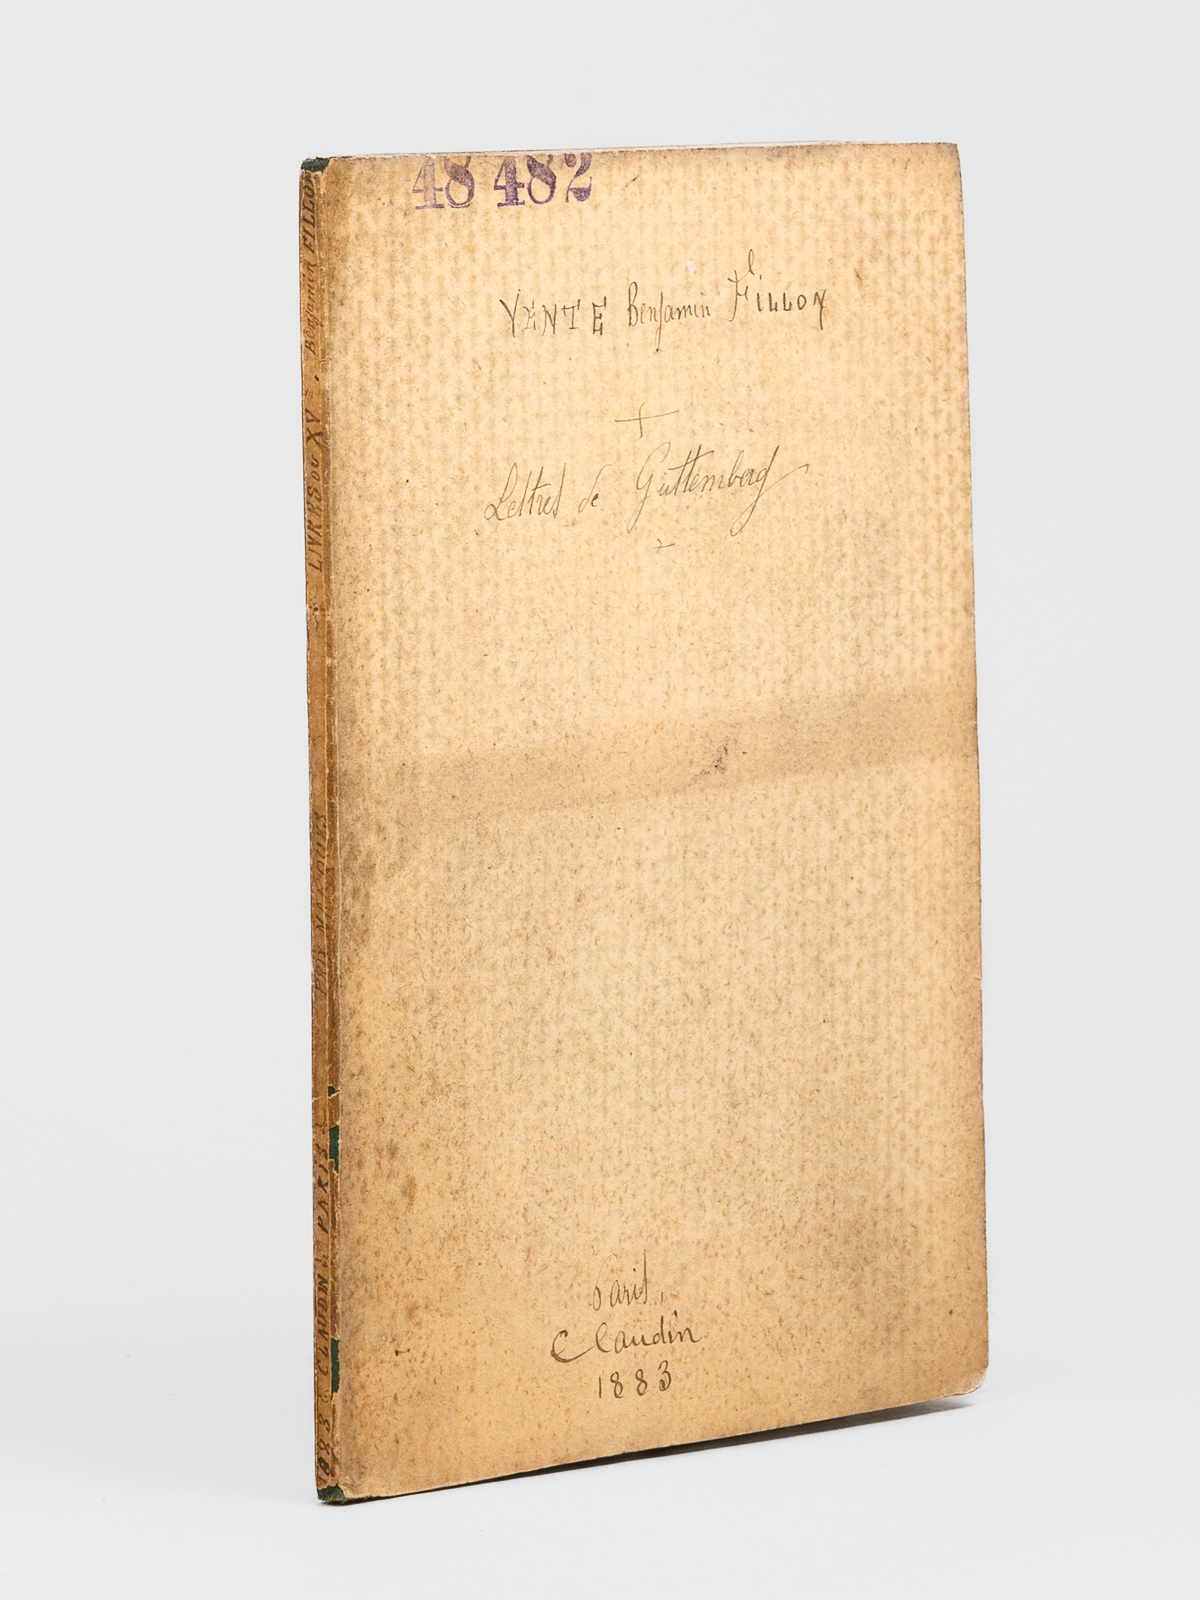 48 482
VENTE Benjamin FILLON
Lettres de Guttemberg
Paris,
Claudin
1883
LIVRES du XVe. Benjamin FILLON
1883 CLAUDIN PARIS